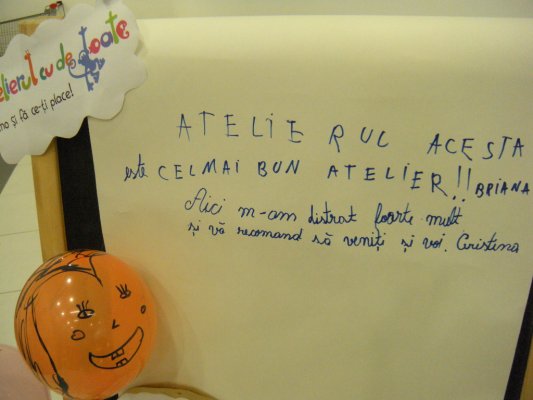 elierul cu de toate
no și fă ce-ți place!
ATELIERUL ACESTA
este CELMAI BUN ATELIER!! BRIANA
Aici m-am distrat foarte mult
și vă recomand să veniți și voi. Cristina